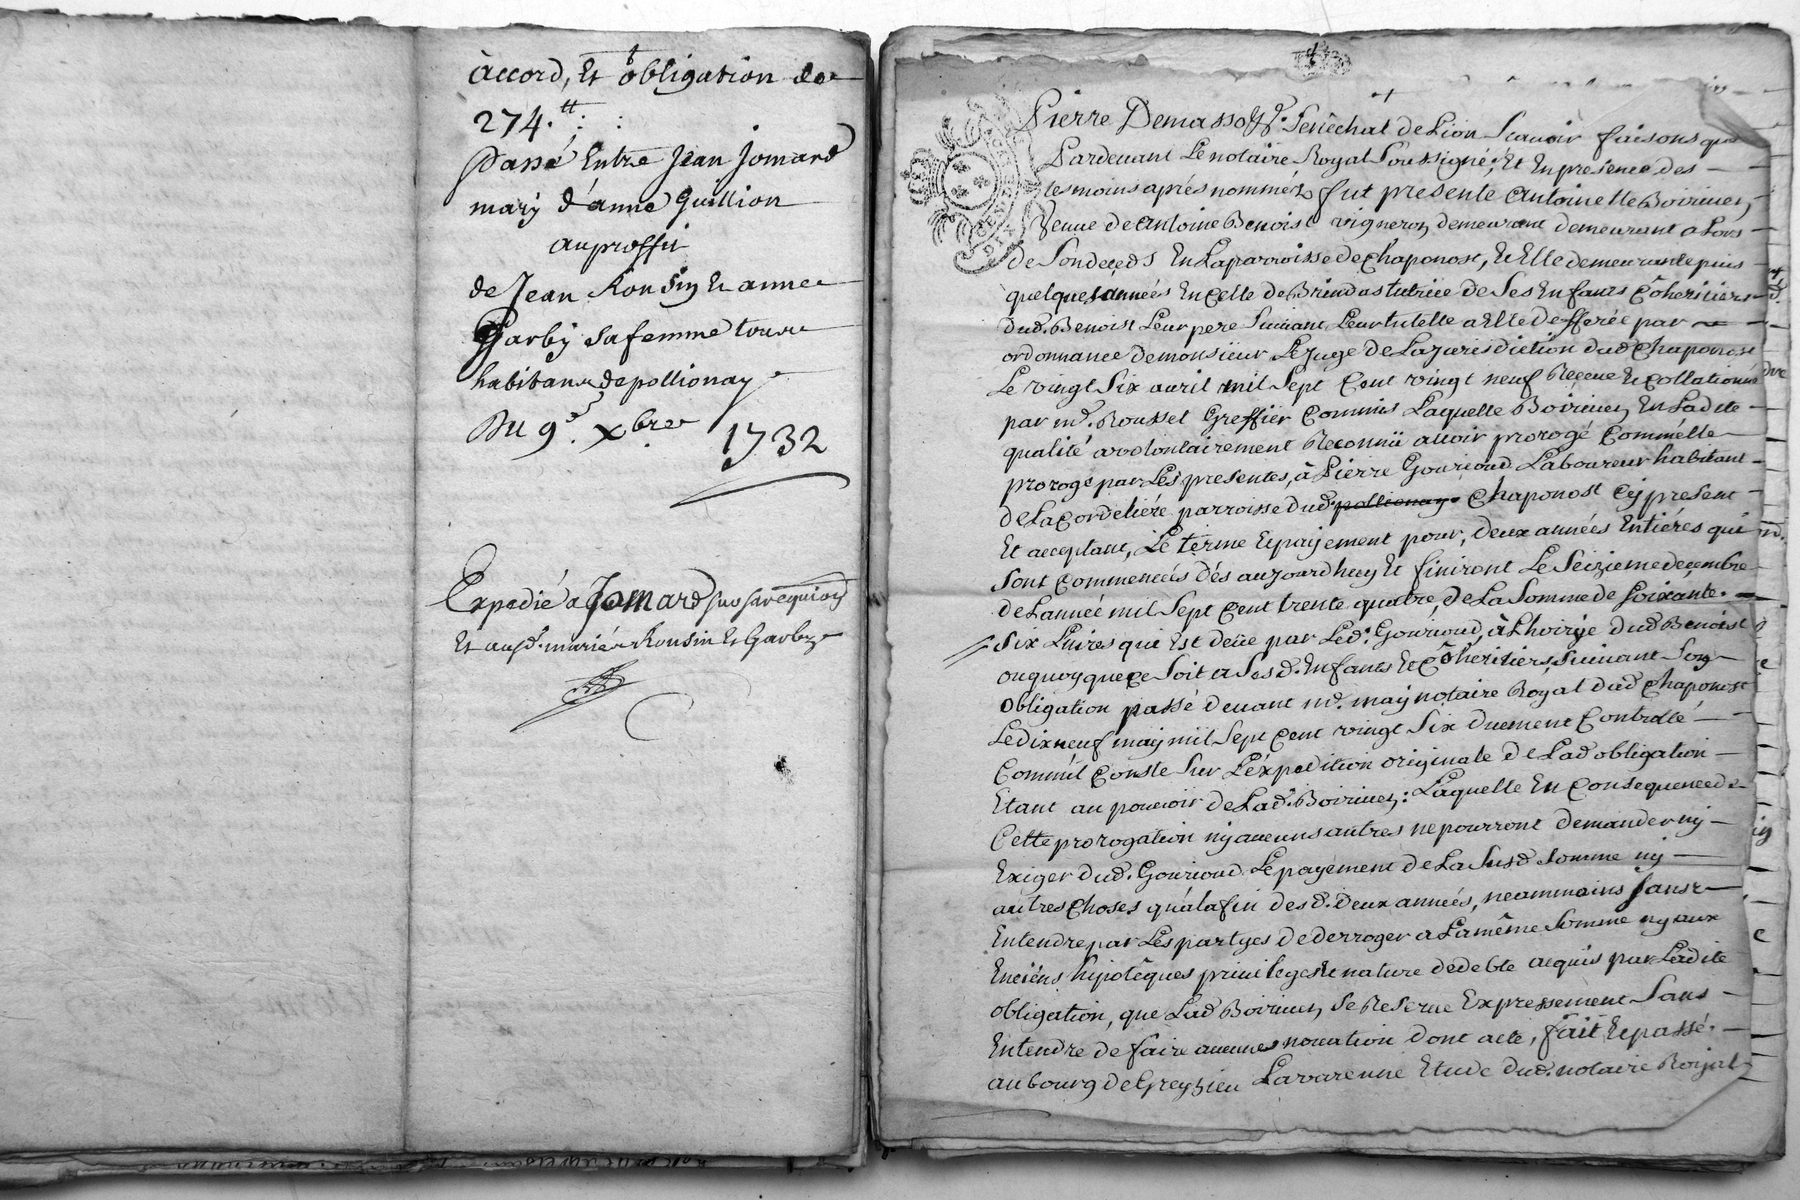 àccord, Et obligation de
274.tt
Passé Entre Jean Jomard
mary d'anne Guillion
au proffit
de Jean Ronsin Et anne
Garby sa femme tous
habitans de pollionay
Du 9e. Xbre 1732
Expedié a Jomard sur sa requion
Et aux d. mariés Ronsin Et Garby
Pierre Demasso Senechal de Lion Scavoir faisons que
Pardevant Le notaire Royal Soussigné, Et En presence des
tesmoins aprés nomméz fut presente Antoinette Boiriven,
Veuve de Antoine Benoist vigneron demeurant demeurant a Lors
de Son decéds En La parroisse de Chaponost, Et Elle demeurant depuis
quelques années En Celle de Brindas tutrice de Ses Enfants Cohéritiers
dud. Benoist Leur pere Suivant Leur tutelle a Elle defferée par
ordonnance de monsiieur Le Juge de La Jurisdiction dud Chaponost
Le vingt Six avril mil Sept Cent vingt neuf Reçeue Et Collationné
par me. Roussel Greffier Commis Laquelle Boiriven, En Ladite
qualité a volontairement Reconnü avoir prorogé Comme Elle
proroge par Les presentes, à Pierre Gourioud Laboureur habitant
de La Cordeliére parroisse dud. pollionay Chaponost Cy present
Et acceptant, Le terme Et payement pour, deux années Entiéres qui
Sont Commencées dés aujourdhuy Et finiront Le Seizieme decembre
de L'année mil Sept Cent trente quatre, de La Somme de Soixante
Six Livres qui Est deüe par Led. Gourioud, à L'hoirye dud Benoist
ou quoy que Ce Soit a Ses d. Enfants Et Cohéritiers, Suivant Son
Obligation passé devant me. may notaire Royal dud Chaponost
Le dixneuf may mil Sept Cent vingt Six duement Controllé
Comm'il Conste Sur L'éxpedition originale de Lad obligation
Etant au pouvoir de Lad. Boiriven; Laquelle En Consequence de
Cette prorogation ny aucuns autres ne pourront demander ny
Exiger dud. Gourioud Le payement de La Susd. Somme ny
autres Choses qu'à la fin des d. deux années, neammoins Sans
Entendre par Les partyes de derroger a La même Somme ny aux
Enciens hipotêques privileges Et nature de debte acquis par Ladite
obligation, que Lad Boiriven, Se Reserve Expressement Sans
Entendre de faire aucunes novation dont acte, fait Et passé
au bourg de Greyzieu Lavarenne Etude dud. notaire Royal